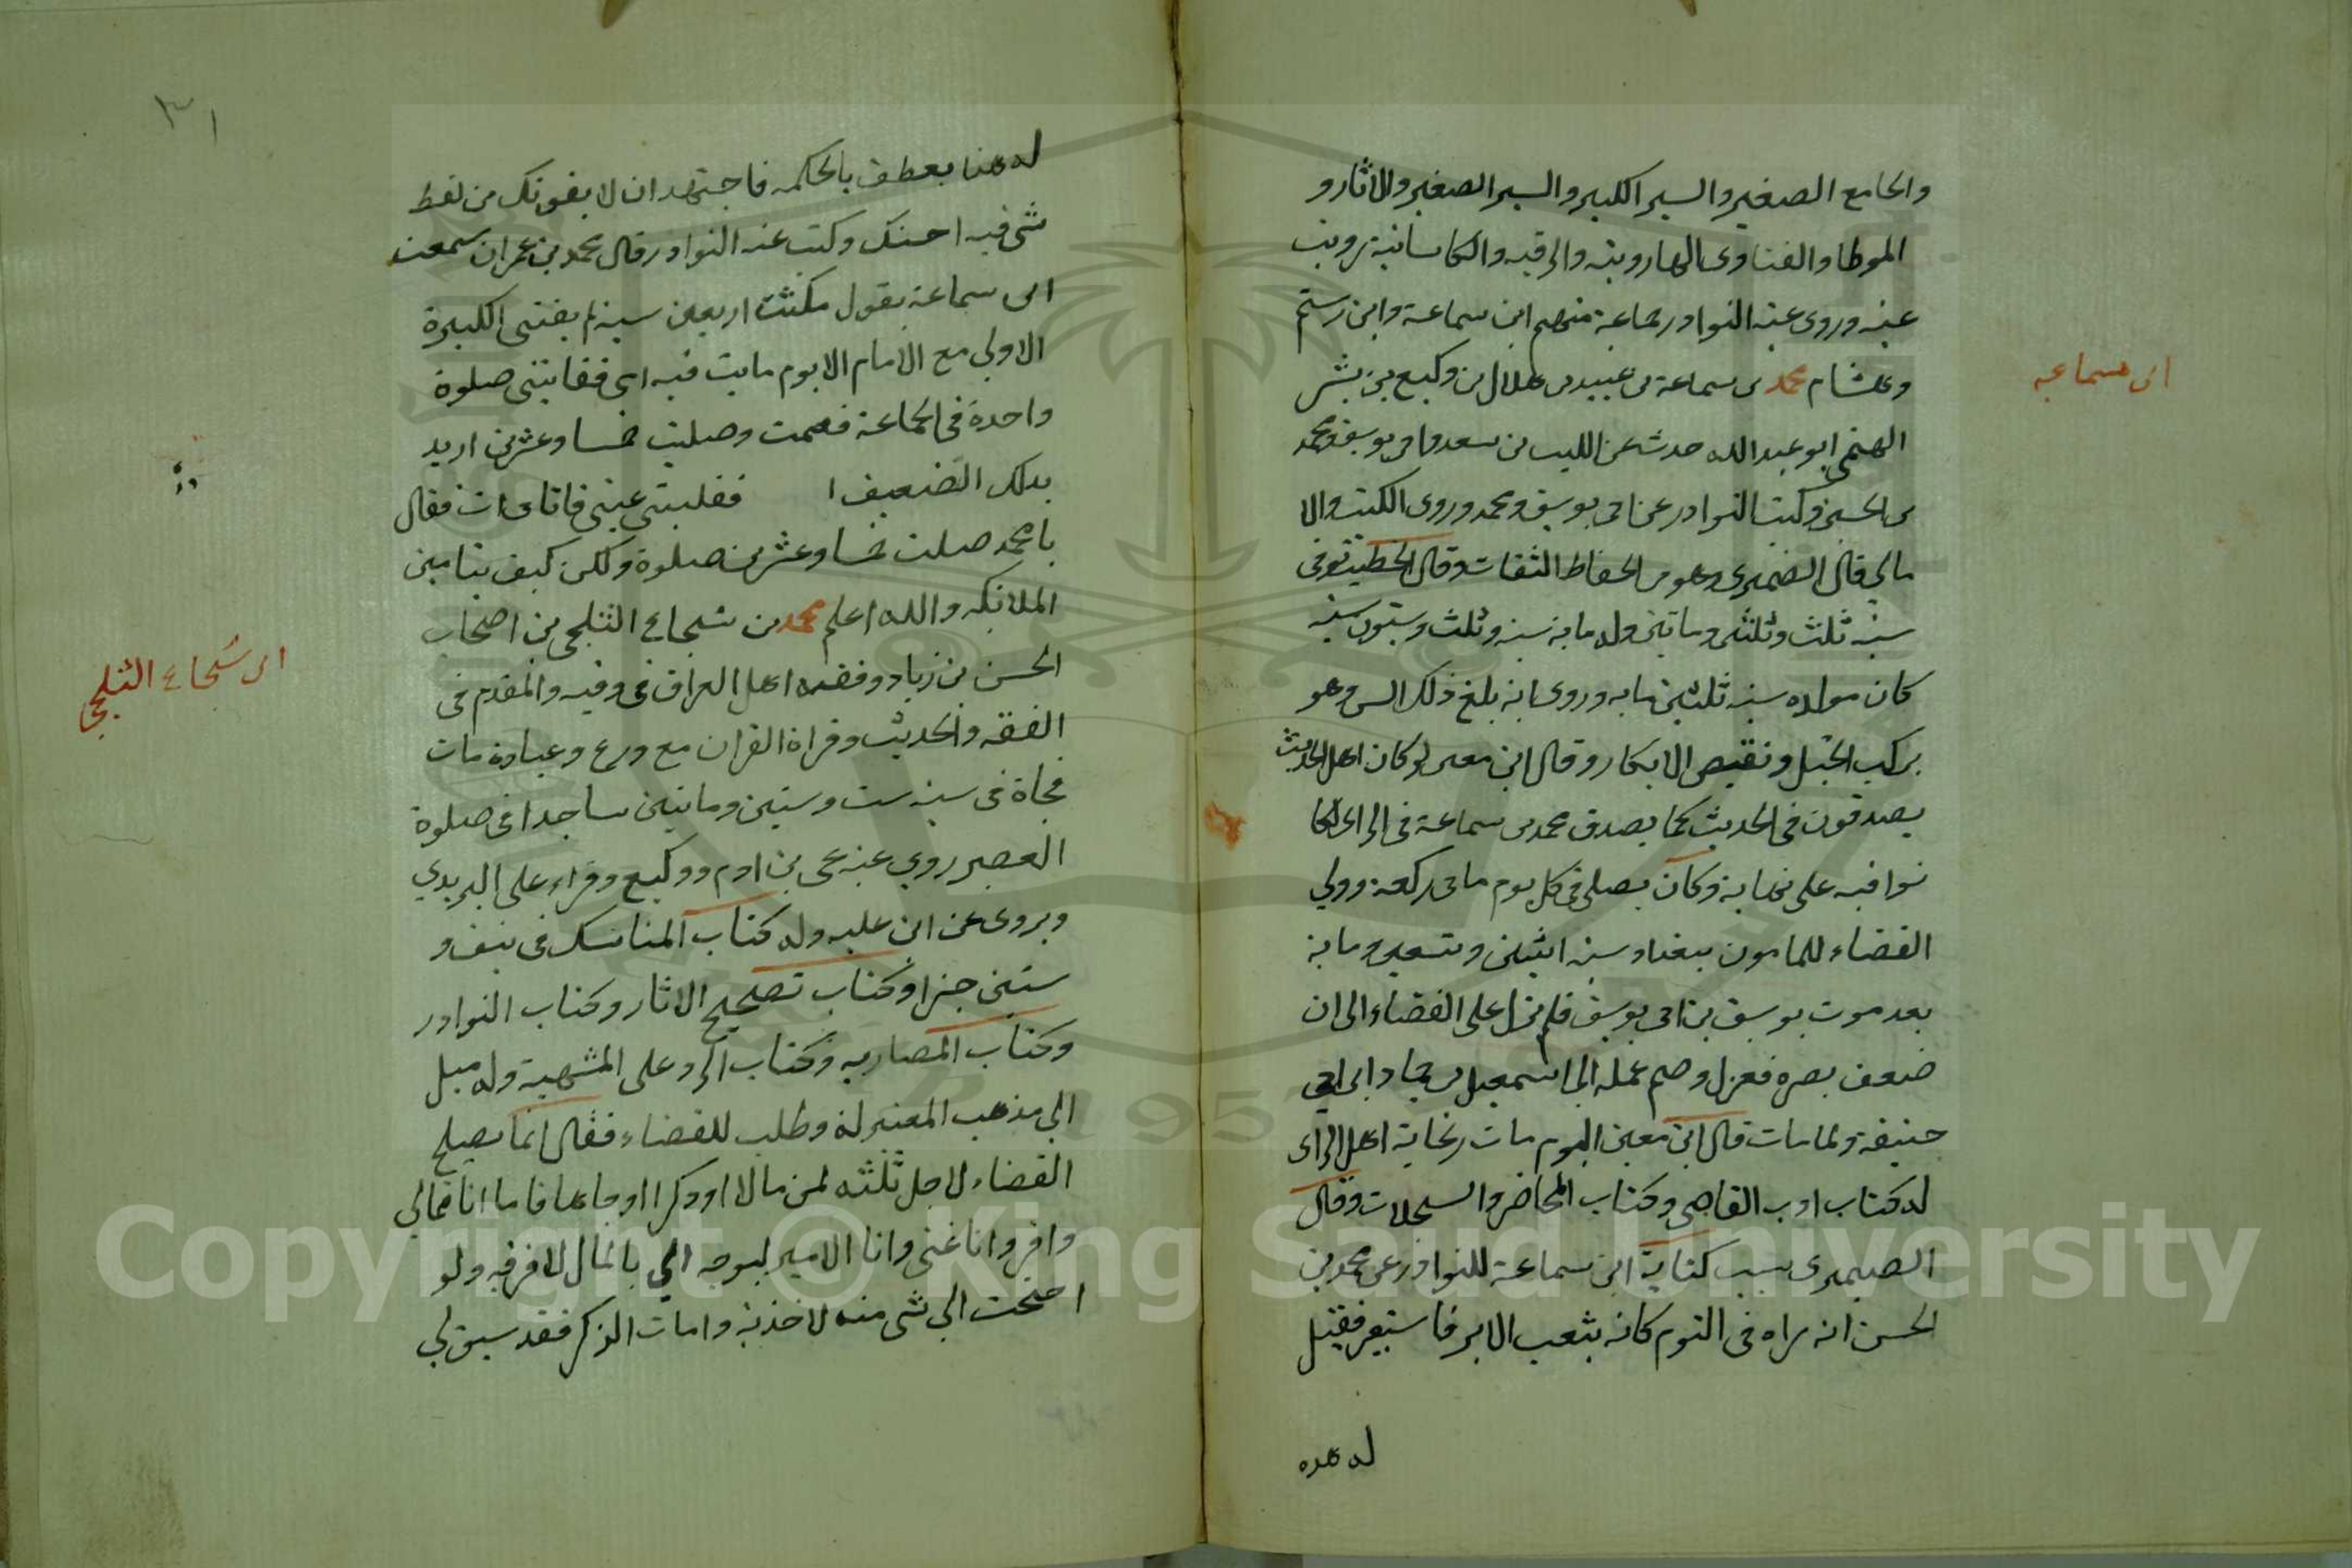 والجامع الصغير والسير الكبير والسير الصغير والاثار و
الموطا والفتاوى الهارونيه والرقيه والكاسانية رويت
عنه وروى عنه النوادر جماعة منهم ابن سماعة وابن رستم
وهشام محمد بن سماعة بن عبيد بن هلال بن وكيع بن بشر
ابن سماعه
ابو عبد الله حدث عن الليث بن سعد وابى يوسف ومحمد
بن الحسن وكتب النوادر عن ابى يوسف ومحمد وروى الكتب والا
مالى قال الضميرى وهو من الحفاظ الثقات وقال الخطيب توفى
سنة ثلث وثلثين وماتين وله ماية سنة وثلث وستون سنه
كان مولده سنه ثلثين مايه وروى انه بلغ ذلك السن وهو
يركب الخيل ويفتض الابكار وقال ابن معين لو كان اهل الحديث
يصدقون فى الحديث كما يصدق محمد بن سماعة فى الراى لكا
نوا فيه على نهاية وكان يصلى فى كل يوم ماتى ركعة وولي
القضاء للمامون ببغداد سنه اثنين وتسعين وماية
بعد موت يوسف بن ابى يوسف فلم يزل على القضاء الى ان
ضعف بصره فعزل وضم عمله الى اسمعيل بن حماد ابن ابى
حنيفة ولما مات قال ابن معين اليوم مات ريحانة اهل الراى
له كتاب ادب القاضى وكتاب المحاضر والسجلات وقال
الصيمرى سبب كتابة ابن سماعة للنوادر عن محمد بن
الحسن انه راه فى النوم كانه يثقب الابر فاستعبر فقيل
له هده
٣١
له هنا يعطف بالحكمه فاجتهد ان لا يفوتك من لفظ
شى فيه احسنك وكتب عنه النوادر قال محمد بن عمران سمعت
ابن سماعة يقول مكثت اربعين سنه لم يفتنى الكبيرة
الاولى مع الامام الا يوم مايت فيه امى ففاتتنى صلوة
واحدة فى الجماعة فقمت وصليت خمسا وعشرين اريد
بدلك التضعيف ا ففلبتنى عينى فاتانى ات فقال
يا محمد صليت خمسا وعشرين صلوة ولكن كيف بتامين
الملائكه والله اعلم محمد بن شجاع الثلجى من اصحاب
ابن شجاع الثلجى
الحسن بن زياد وفقيه اهل العراق فى وقته والمقدم فى
الفقه والحديث وقراة القران مع ورع وعبادة مات
فجاة فى سنه ست وستين وماتين ساجدا فى صلوة
العصر روى عنه يحى بن ادم ووكيع وقراء على اليزيدي
ويروى عن ابن عليه وله كتاب المناسك فى نيف و
ستين جزا وكتاب تصحيح الاثار وكتاب النوادر
وكتاب المضاربه وكتاب الرد على المشبهية وله ميل
الى مذهب المعتزلة وطلب للقضاء فقال انما يصلح
القضاء لاجل ثلثه لمن مالا او ذكرا او جاها فاما انا فمالي
وافر وانا غنى وانا الامير ليوجه الي بالمال لافرقه ولو
احتجت الى شى منه لاخذته وامات الذكر فقد سبق لي
Copyright © King Saud University